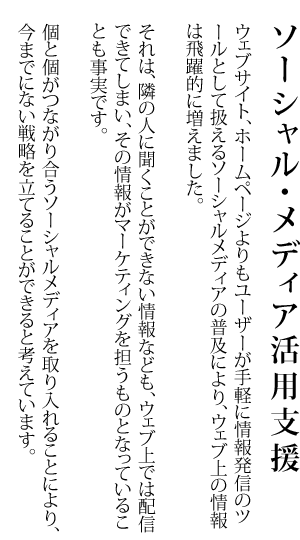 ソーシャル・メディア活用支援
ウェブサイト、ホームページよりもユーザーが手軽に情報発信のツ
ールとして扱えるソーシャルメディアの普及により、ウェブ上の情報
は飛躍的に増えました。
それは、隣の人に聞くことができない情報なども、ウェブ上では配信
できてしまい、その情報がマーケティングを担うものとなっているこ
とも事実です。
個と個がつながり合うソーシャルメディアを取り入れることにより、
今までにない戦略を立てることができると考えています。